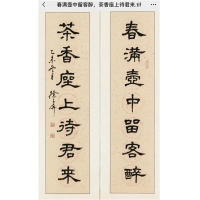 春满壶中留客醉，茶香座上待君来.tif
春滿壺中留客醉
茶香座上待君來